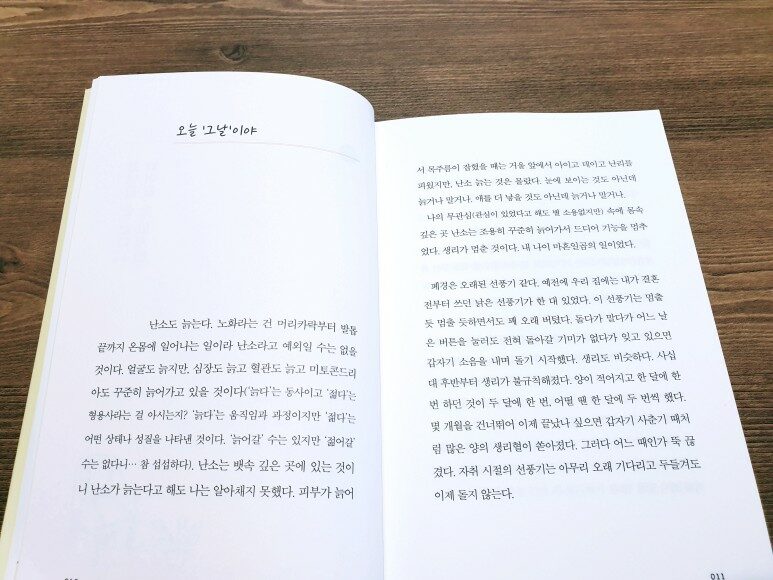 오늘 '그날'이야
난소도 늙는다. 노화라는 건 머리카락부터 발톱
끝까지 온몸에 일어나는 일이라 난소라고 예외일 수는 없을
것이다. 얼굴도 늙지만, 심장도 늙고 혈관도 늙고 미토콘드리
아도 꾸준히 늙어가고 있을 것이다('늙다'는 동사이고 '젊다'는
형용사라는 걸 아시는지? '늙다'는 움직임과 과정이지만 '젊다'는
어떤 상태나 성질을 나타낸 것이다. '늙어갈' 수는 있지만 '젊어갈'
수는 없다니… 참 섭섭하다). 난소는 뱃속 깊은 곳에 있는 것이
니 난소가 늙는다고 해도 나는 알아채지 못했다. 피부가 늙어
010
서 목주름이 잡혔을 때는 거울 앞에서 아이고 데이고 난리를
피웠지만, 난소 늙는 것은 몰랐다. 눈에 보이는 것도 아닌데
늙거나 말거나. 애를 더 낳을 것도 아닌데 늙거나 말거나.
나의 무관심(관심이 있었다고 해도 별 소용없지만) 속에 몸속
깊은 곳 난소는 조용히 꾸준히 늙어가서 드디어 기능을 멈추
었다. 생리가 멈춘 것이다. 내 나이 마흔일곱의 일이었다.
폐경은 오래된 선풍기 같다. 예전에 우리 집에는 내가 결혼
전부터 쓰던 낡은 선풍기가 한 대 있었다. 이 선풍기는 멈출
듯 멈출 듯하면서도 꽤 오래 버텼다. 돌다가 말다가 어느 날
은 버튼을 눌러도 전혀 돌아갈 기미가 없다가 잊고 있으면
갑자기 소음을 내며 돌기 시작했다. 생리도 비슷하다. 사십
대 후반부터 생리가 불규칙해졌다. 양이 적어지고 한 달에 한
번 하던 것이 두 달에 한 번, 어떨 땐 한 달에 두 번씩 했다.
몇 개월을 건너뛰어 이제 끝났나 싶으면 갑자기 사춘기 때처
럼 많은 양의 생리혈이 쏟아졌다. 그러다 어느 때인가 뚝 끊
겼다. 자취 시절의 선풍기는 아무리 오래 기다리고 두들겨도
이제 돌지 않는다.
011